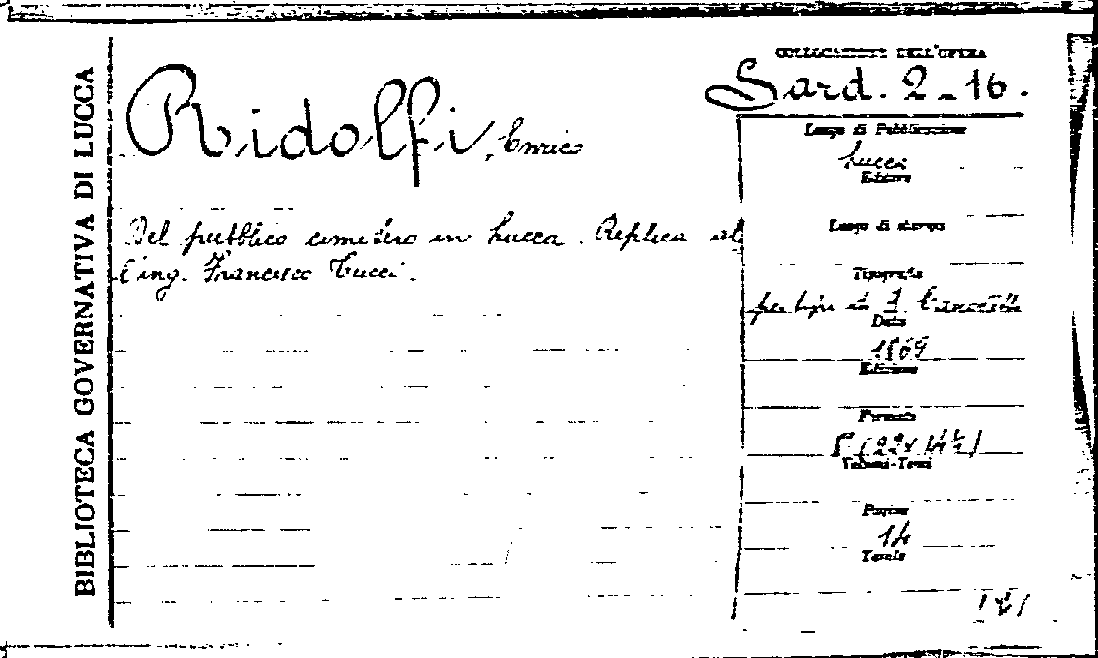 BIBLIOTECA GOVERNATIVA DI LUCCA
COLLOCAZIONE DELL'OPERA
Sard. 2-16.
Ridolfi, Enrico
Del pubblico cimitero in Lucca. Replica al
l'ing. Francesco Tucci.
Luogo di Pubblicazione
Lucca
Editore
Luogo di stampa
Tipografia
per tipi di
Data
1869
Edizione
Formato
8° (22 x 14½)
Volumi-Tomi
Pagine
14
Tavole